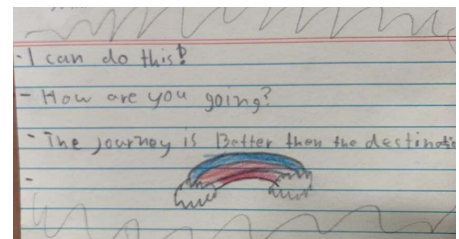 - I can do this!
- How are you going?
- The journey is Better then the destination
-